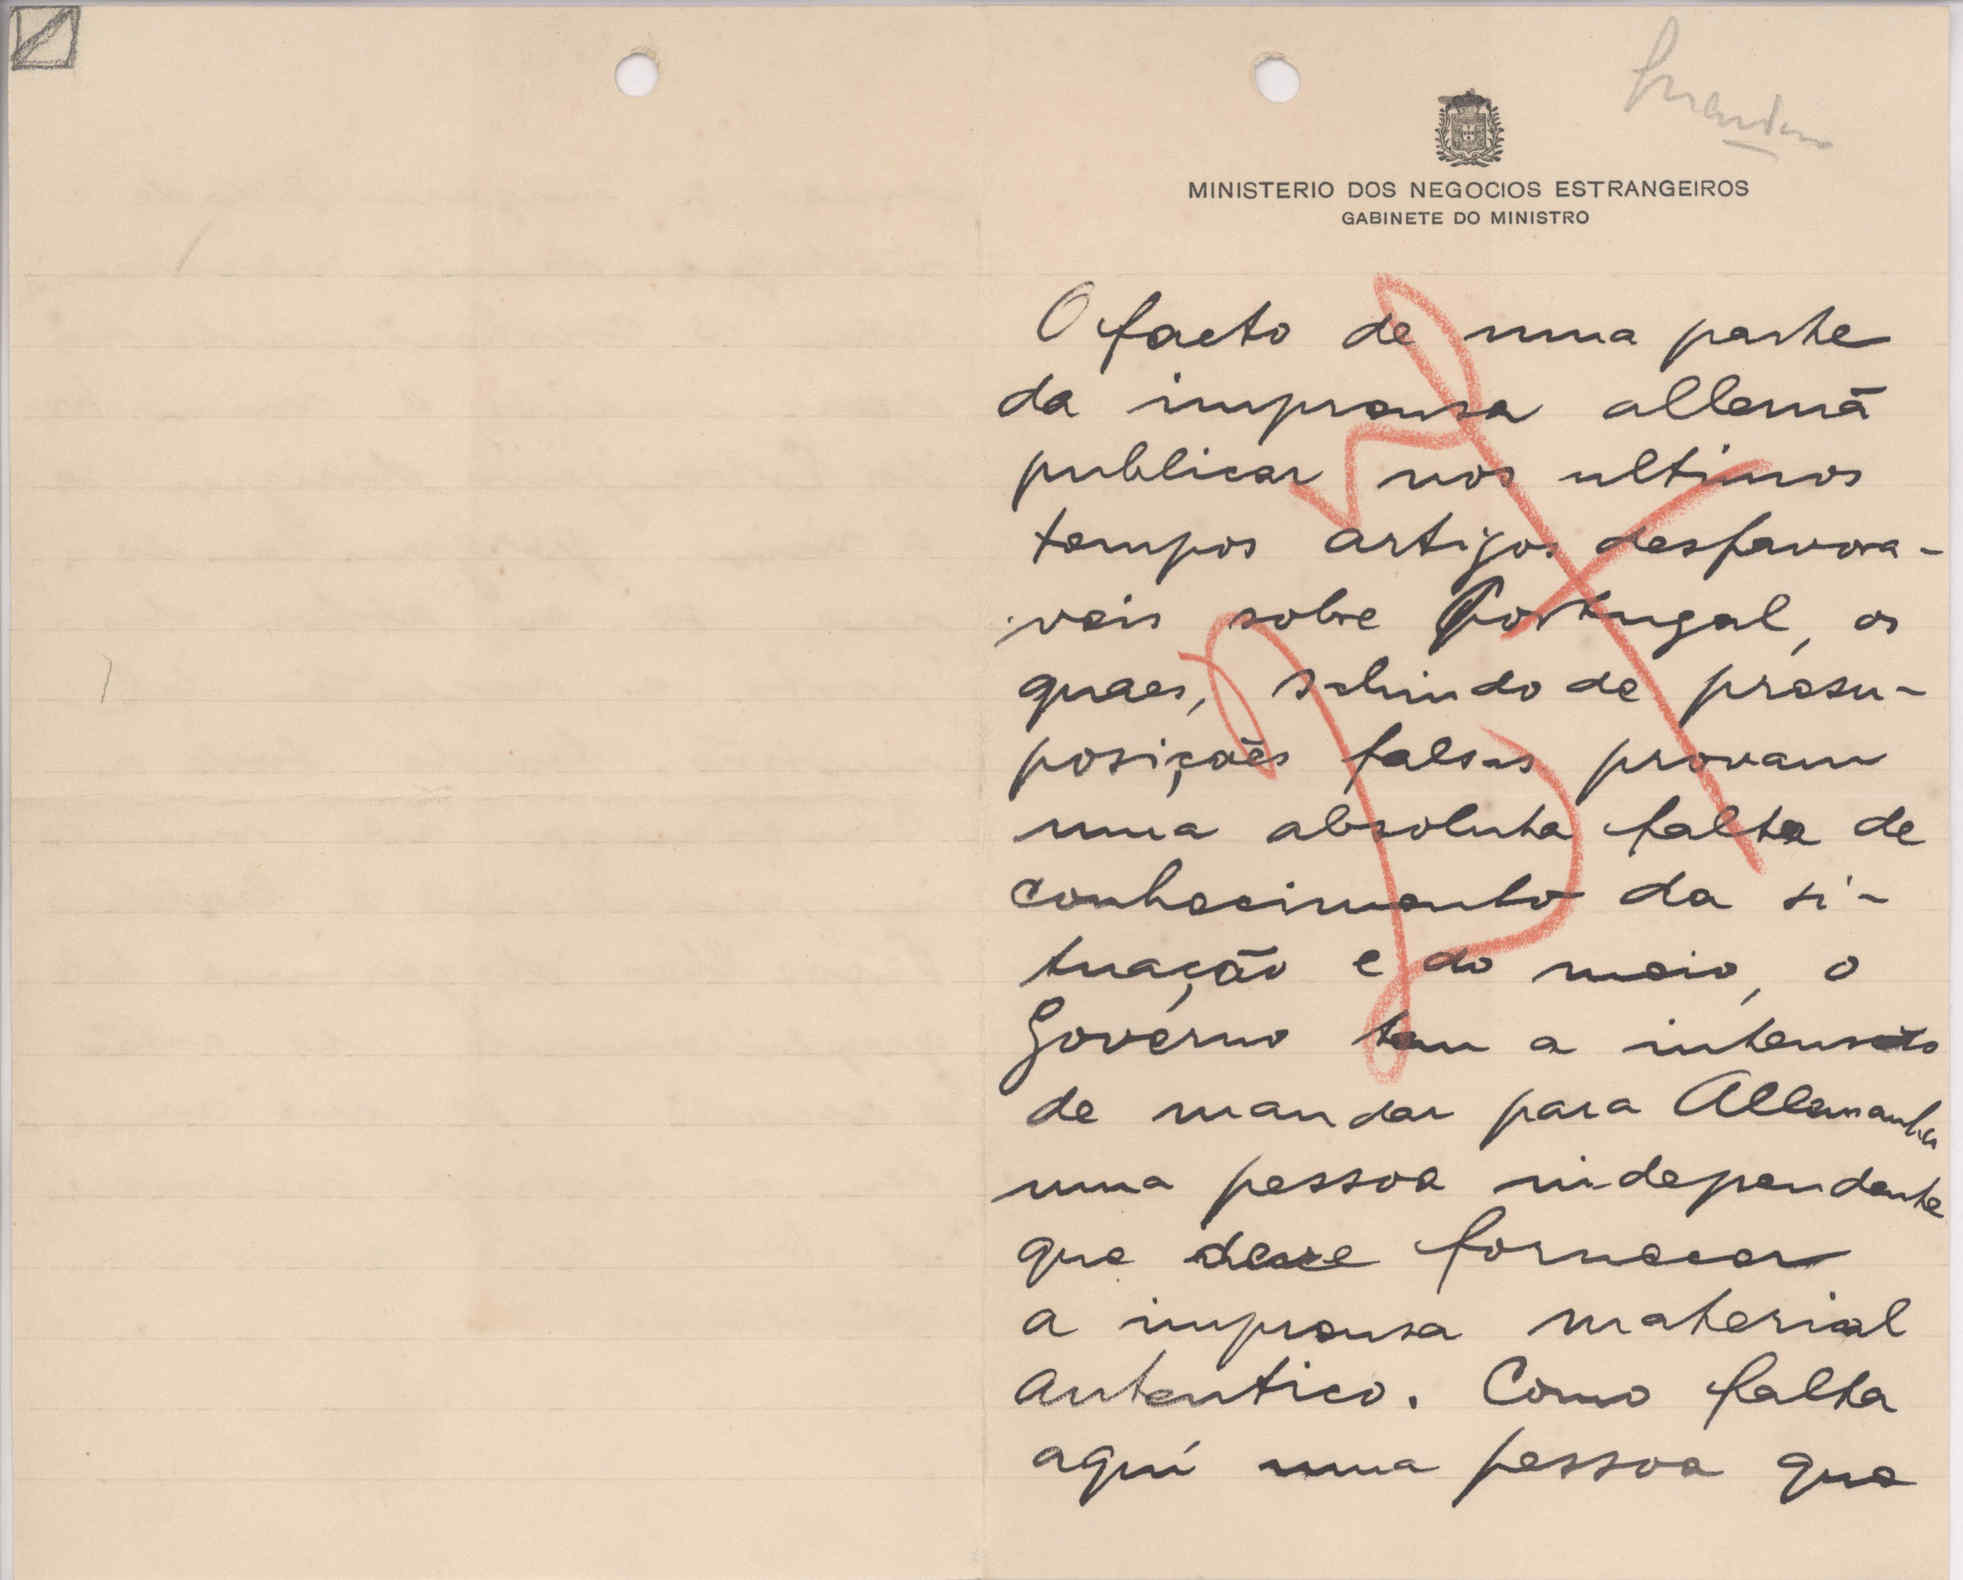 MINISTERIO DOS NEGOCIOS ESTRANGEIROS
GABINETE DO MINISTRO
O facto de uma parte
da imprensa allemã
publicar nos ultimos
tempos artigos desfavora-
veis sobre Portugal, os
quaes, sahindo de presu-
posições falsas provam
uma absoluta falta de
conhecimento da si-
tuação e do meio, o
Governo tem a intensão
de mandar para Allemanha
uma pessoa independente
que deve fornecer
a imprensa material
autentico. Como falta
aqui uma pessoa que